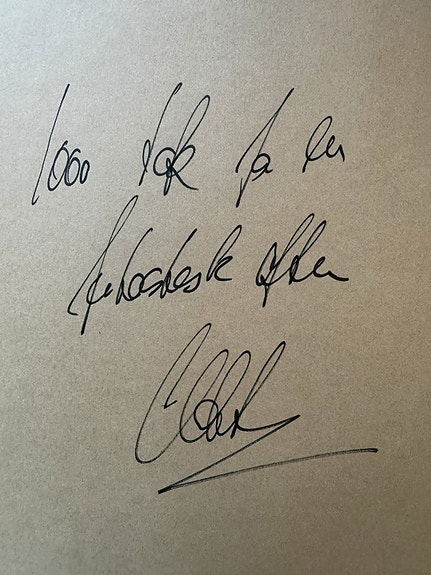 1000 tak for en
fantastisk aften